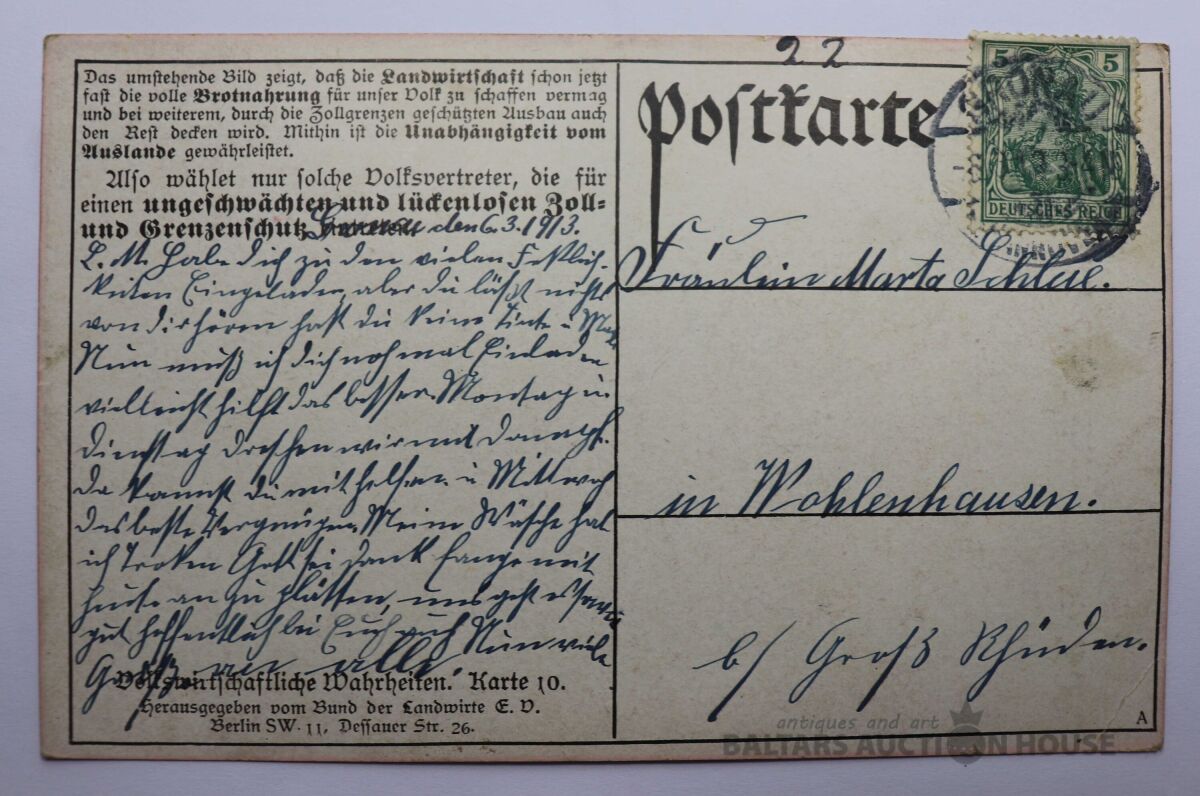 Das umstehende Bild zeigt, daß die Landwirtschaft schon jetzt
fast die volle Brotnahrung für unser Volk zu schaffen vermag
und bei weiterem, durch die Zollgrenzen geschützten Ausbau auch
den Rest decken wird. Mithin ist die Unabhängigkeit vom
Auslande gewährleistet.
Also wählet nur solche Volksvertreter, die für
einen ungeschwächten und lückenlosen Zoll=
und Grenzenschutz
den 6.3.1913.
L. M. Habe Dich zu den vielen Festlich-
keiten Eingeladen, aber du läßt nichts
von dir hören hast du keine Tinte u
Nun muß ich dich noch mal Einladen
vielleicht hilft das besser. Montag u
Dienstag dreschen wir mit Dampf.
Da kannst du mit helfen u Mittwoch
das beste Vergnügen. Meine Wäsche hab
ich Troken Gott sei dank fange mit
heute an zu plätten, uns geht es
gut hoffentlich bei Euch auch Nun viele
Grüße an alle
Volkswirtschaftliche Wahrheiten. Karte 10.
Herausgegeben vom Bund der Landwirte E. V.
Berlin SW. 11, Dessauer Str. 26.
22
Postkarte
5 5
DEUTSCHES REICH
Fräulein Marta
in Wohlenhausen.
b/ Groß Rhüden.
A
antiques and art
BALTARS AUCTION HOUSE